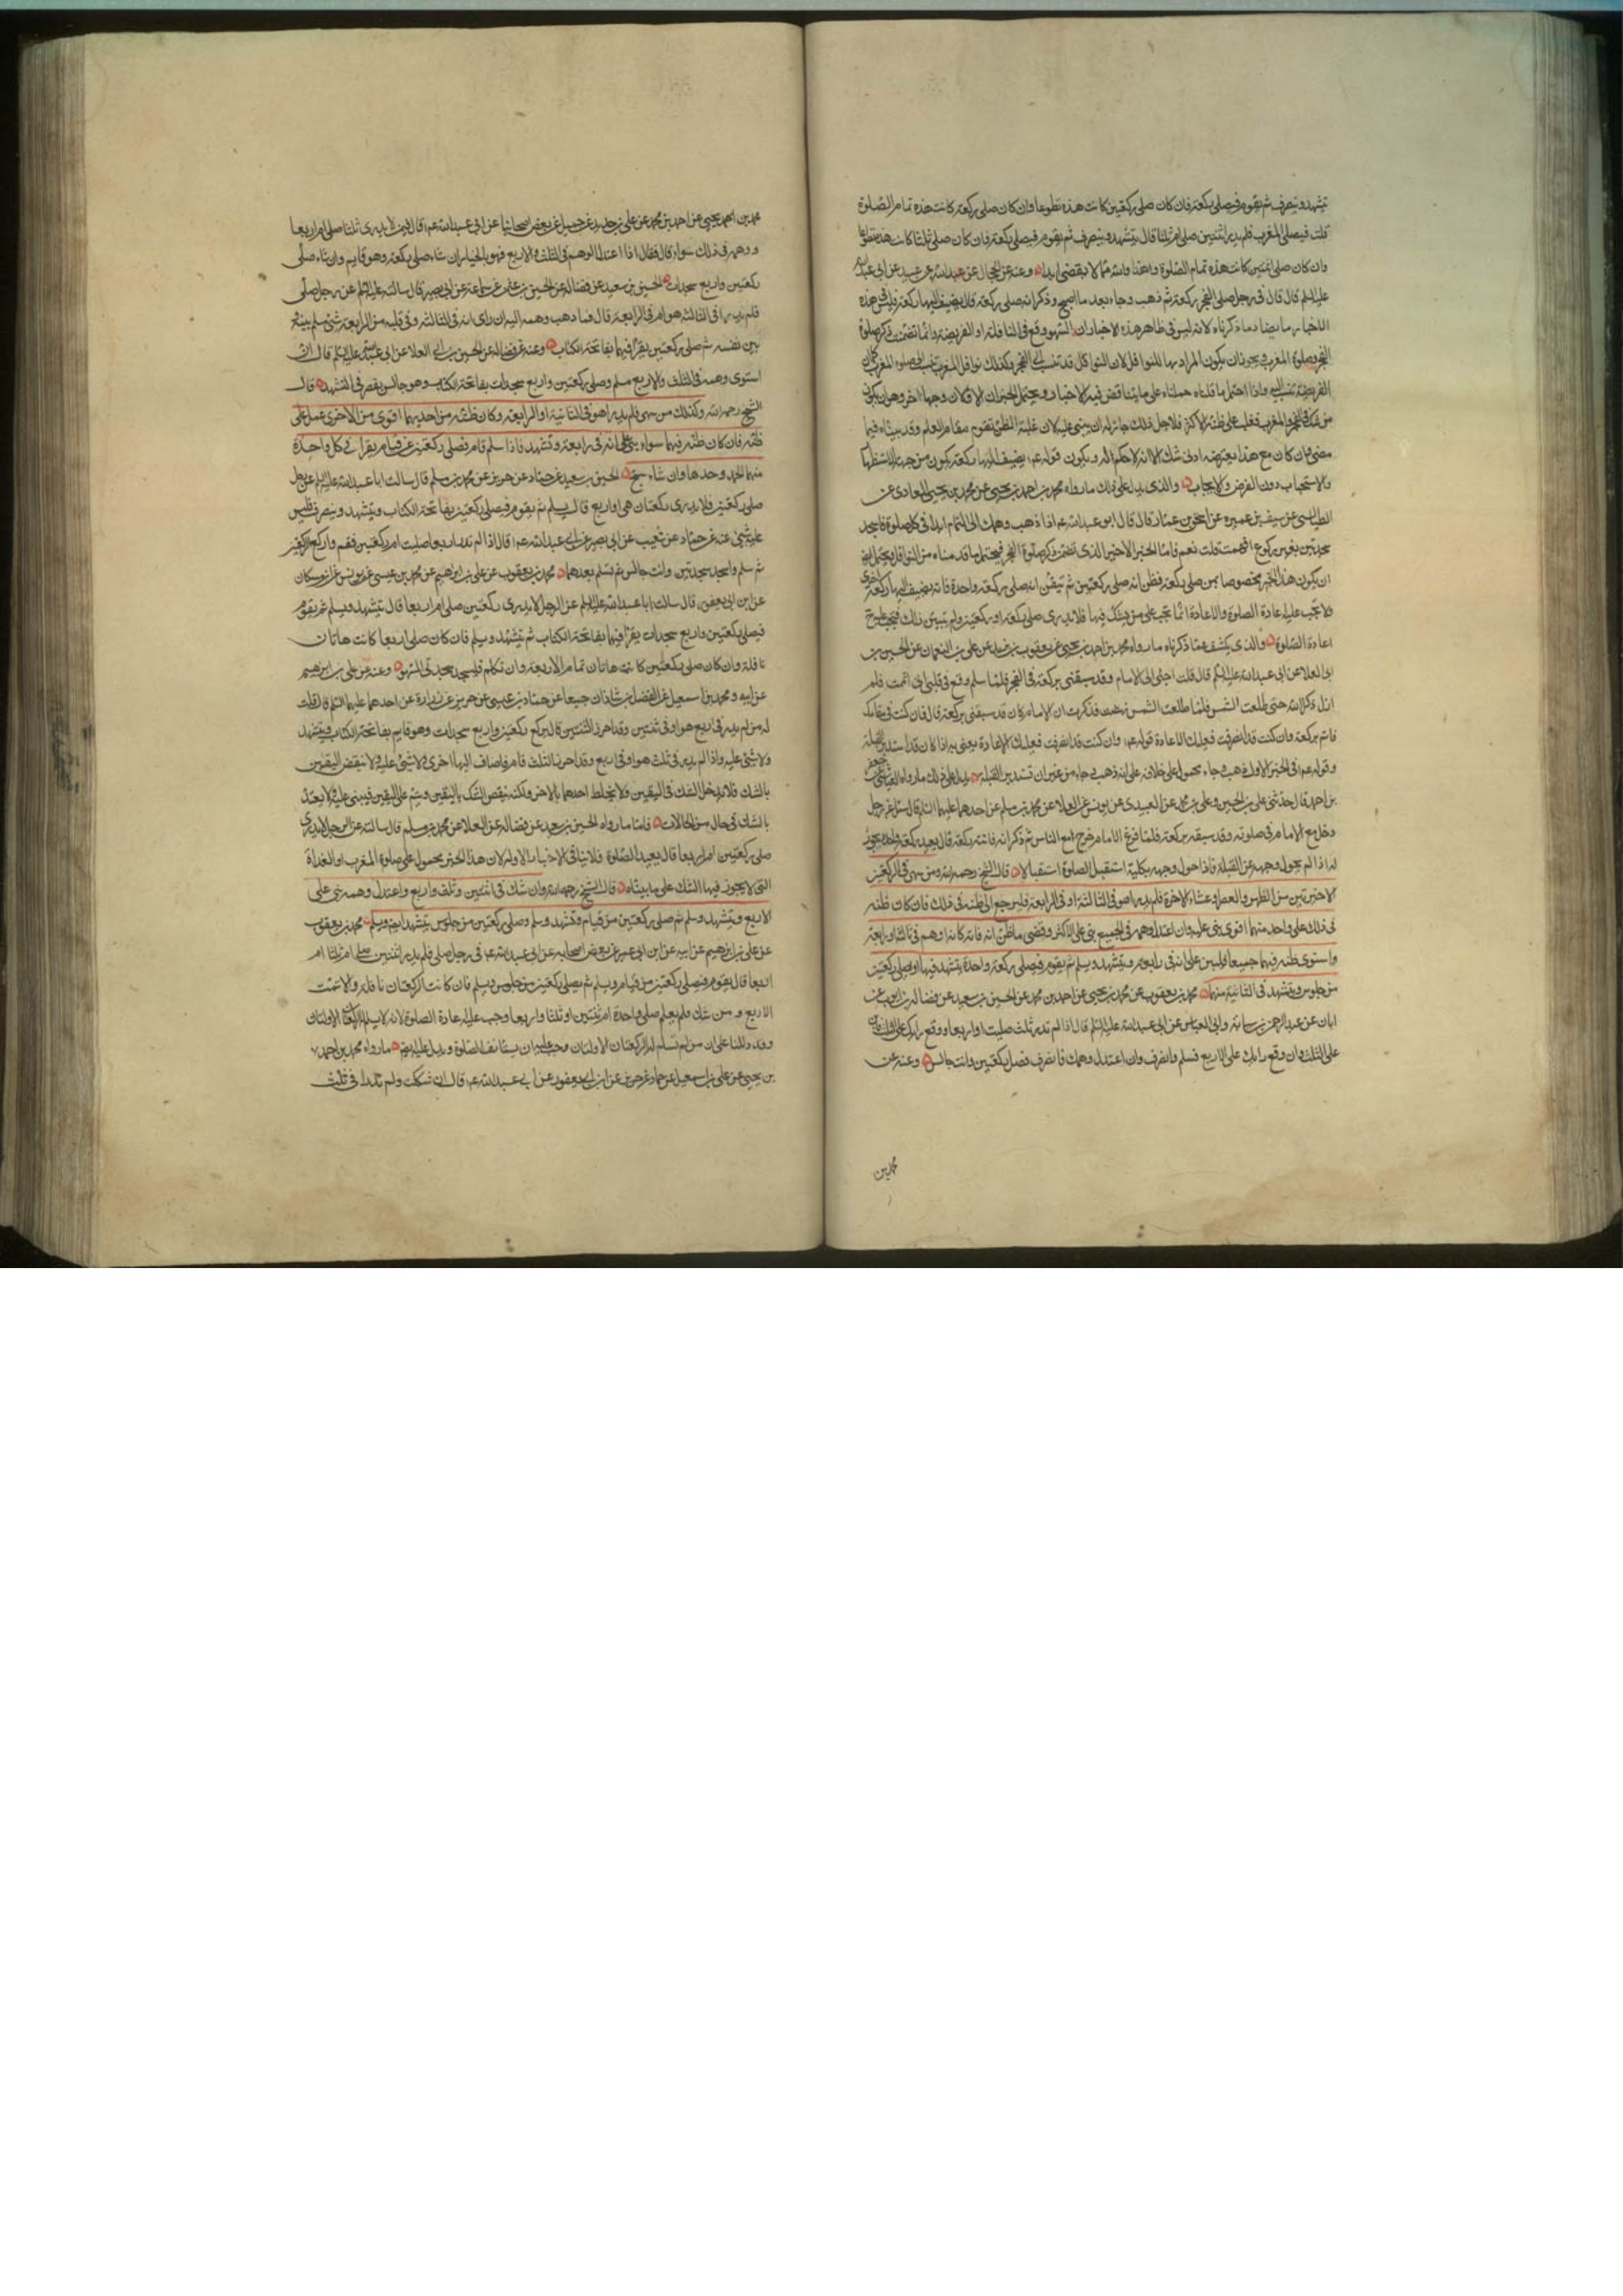 يتشهد وينصرف ثم يقوم فيصلى ركعة فان كان صلى ركعتين كانت هذه تطوعا وان كان صلى ركعة كانت هذه تمام الصلوة
قلت فيصلى المغرب فلم يدر اثنتين صلى ام ثلثا قال يتشهد وينصرف ثم يقوم فيصلى ركعة فان كان صلى ثلثا كانت هذه تطوعا
وان كان صلى اثنتين كانت هذه تمام الصلوة وهذا والله مما لا يقضى ابدا وعنه عن الحجال عن عبد الله عن عبيد عن ابى عبد الله
عليه السلم قال قال فى رجل صلى الفجر ركعة ثم ذهب وجاء بعد ما اصبح وذكر انه صلى ركعة قال يضيف اليها ركعة فليس فى هذه
الاخبار ما يضاد ما ذكرناه لانه ليس فى ظاهر هذه الاخبار ان السهو وقع فى النافلة او الفريضة وانما تضمنت ذكر صلوة
الفجر وصلوة المغرب ويجوز ان يكون المراد بها النوافل لان النوافل قد تنسب الى الفجر وكذلك نوافل المغرب تنسب الى صلوة المغرب كما ان
الفريضة تنسب اليه واذا احتمل ما قلناه حملناه على ما لا يتناقض فيه الاخبار ويحتمل الخبران الاولان وجها اخر وهو ان يكون
من شك فى الفجر والمغرب فغلب على ظنه الاكثر فلاجل ذلك جاز له ان يبنى عليه لان غلبة الظن تقوم مقام العلم وقد بيناه فيما
مضى وان كان مع هذا يعترضه ادنى شك الا انه لا حكم له ويكون قوله عم يضيف اليها ركعة يكون من جهة الاستظهار
والاستحباب دون الفرض والايجاب والذى يدل على ذلك ما رواه محمد بن احمد بن يحيى عن محمد بن يحيى المعاذى عن
الطيالسى عن سيف بن عميرة عن اسحق بن عمار قال قال ابو عبد الله عم اذا ذهب وهمك الى التمام ابدا فى كل صلوة فاسجد
سجدتين بغير ركوع افهمت قلت نعم فاما الخبر الاخير الذى تضمن ذكر صلوة الفجر فيحتمل ما قدمناه من النوافل ويحتمل ايضا
ان يكون هذا الخبر مخصوصا بمن صلى ركعة فظن انه صلى ركعتين ثم تيقن انه صلى ركعة واحدة فانه يضيف اليها ركعة اخرى
ولا يجب عليه اعادة الصلوة والاعادة انما تجب على من يشك فيها فلا يدرى صلى ركعة او ركعتين ولم يتبين ذلك فيجب عليه ح
اعادة الصلوة والذى يكشف عما ذكرناه ما رواه محمد بن احمد بن يحيى عن يعقوب بن يزيد عن على بن النعمان عن الحسين بن
ابى العلا عن ابى عبد الله عليه السلم قال قلت اجئ الى الامام وقد سبقنى بركعة فى الفجر فلما سلم وقع فى قلبى انى اتممت فلم
ازل ذاكرا لله حتى طلعت الشمس فلما طلعت الشمس نهضت فذكرت ان الامام كان قد سبقنى بركعة قال فان كنت فى مقامك
فاتم بركعة وان كنت قد انصرفت فعليك الاعادة قوله عم وان كنت قد انصرفت فعليك الاعادة يعنى به اذا كان قد استدبر القبلة
وقوله عم فى الخبر الاول ذهب وجاء محمول على خلافه على انه ذهب وجاء من غير ان تستدبر القبلة يدل على ذلك ما رواه العياشى عن جعفر
بن احمد قال حدثنى على بن الحسين وعلى بن محمد عن العبيدى عن يونس عن العلا عن محمد بن مسلم عن احدهما عليهما السلم قال سئل عن رجل
دخل مع الامام فى صلوته وقد سبقه بركعة فلما فرغ الامام خرج مع الناس ثم ذكر انه فاتته ركعة قال يعيد ركعة واحدة يجوز
له اذا لم يحول وجهه عن القبلة فاذا حول وجهه بكلية استقبل الصلوة استقبالا قال الشيخ رحمه الله ومن سهى فى الركعتين
الاخيرتين من الظهر والعصر وعشاء الاخرة فلم يدر اهو فى الثالثة او فى الرابعة فليرجع الى ظنه فى ذلك فان كان ظنه
فى ذلك على واحد منهما اقوى بنى عليه وان اعتدل وهمه فى الجميع بنى على الاكثر وقضى ما ظن انه فاته كانه اوهم فى ثالثة او رابعة
واستوى ظنه فيهما جميعا فليبن على انه فى رابعة ويتشهد ويسلم ثم يقوم فيصلى ركعة واحدة يتشهد فيها او يصلى ركعتين
من جلوس ويتشهد فى الثانية منهما محمد بن يعقوب عن محمد بن يحيى عن احمد بن محمد عن الحسين بن سعيد عن فضالة بن ايوب عن
ابان عن عبد الرحمن بن سيابة وابى العباس عن ابى عبد الله عليه السلم قال اذا لم تدر ثلث صليت او اربعا ووقع رايك على الثلث فابن
على الثلث وان وقع رايك على الاربع فسلم وانصرف وان اعتدل وهمك فانصرف وصل ركعتين وانت جالس وعنه عن
محمد بن
محمد بن احمد يحيى عن احمد بن محمد عن على بن حديد عن جميل عن بعض اصحابنا عن ابى عبد الله عم قال فيمن لا يدرى ثلثا صلى ام اربعا
ووهمه فى ذلك سواء قال فقال اذا اعتدل الوهم فى الثلث والاربع فهو بالخيار ان شاء صلى ركعة وهو قايم وان شاء صلى
ركعتين واربع سجدات الحسين بن سعيد عن فضالة عن الحسين بن عثمن عن سماعة عن ابى بصير قال سالته عليه السلم عن رجل صلى
فلم يدر افى الثالثة هو ام فى الرابعة قال فما ذهب وهمه اليه ان راى انه فى الثالثة وفى قلبه من الرابعة شئ سلم بينه
بين نفسه ثم صلى ركعتين يقرا فيهما بفاتحة الكتاب وعنه عن فضالة عن الحسين بن ابى العلا عن ابى عبد الله عليه السلم قال ان
استوى وهمه فى الثلث والاربع سلم وصلى ركعتين واربع سجدات بفاتحة الكتاب وهو جالس يقصر فى التشهد قال
الشيخ رحمه الله وكذلك من سهى فلم يدر اهو فى الثانية او الرابعة وكان ظنه من احديهما اقوى من الاخرى عمل على
ظنه فان كان ظنه فيهما سواء بنى على انه فى رابعة وتشهد فاذا سلم قام فصلى ركعتين عن قيام يقرا فى كل واحدة
منهما الحمد وحدها وان شاء سبح الحسين بن سعيد عن حماد عن حريز عن محمد بن مسلم قال سالت ابا عبد الله عليه السلم عن رجل
صلى ركعتين فلا يدرى ركعتان هى او اربع قال يسلم ثم يقوم فيصلى ركعتين بفاتحة الكتاب ويتشهد وينصرف فليس
عليه شئ عنه عن حماد عن شعيب عن ابى بصير عن ابى عبد الله عم قال اذا لم تدر اربعا صليت ام ركعتين فقم واركع ركعتين
ثم سلم واسجد سجدتين وانت جالس ثم تسلم بعدهما محمد بن يعقوب عن على بن ابراهيم عن محمد بن عيسى عن يونس عن ابن مسكان
عن ابن ابى يعفور قال سالت ابا عبد الله عليه السلم عن الرجل لا يدرى ركعتين صلى ام اربعا قال يتشهد ويسلم ثم يقوم
فيصلى ركعتين واربع سجدات يقرا فيهما بفاتحة الكتاب ثم يتشهد ويسلم فان كان صلى اربعا كانت هاتان
نافلة وان كان صلى ركعتين كانت هاتان تمام الاربعة وان تكلم فليسجد سجدتى السهو وعنه عن على بن ابرهيم
عن ابيه ومحمد بن اسمعيل عن الفضل بن شاذان جميعا عن حماد بن عيسى عن حريز عن زرارة عن احدهما عليهما السلم قال قلت
له من لم يدر فى اربع هو او فى ثنتين وقد احرز الثنتين قال يركع ركعتين واربع سجدات وهو قايم بفاتحة الكتاب ويتشهد
ولا شئ عليه واذا لم يدر فى ثلث هو او فى اربع وقد احرز الثلث قام فاضاف اليها اخرى ولا شئ عليه ولا ينقض اليقين
بالشك ولا يدخل الشك فى اليقين ولا يخلط احدهما بالاخر ولكنه ينقض الشك باليقين ويتم على اليقين فيبنى عليه ولا يعتد
بالشك فى حال من الحالات فاما ما رواه الحسين بن سعيد عن فضالة عن العلا عن محمد بن مسلم قال سالته عن الرجل لا يدرى
صلى ركعتين ام اربعا قال يعيد الصلوة فلا ينافى الاخبار الاولة لان هذا الخبر محمول على صلوة المغرب او الغداة
التى لا يجوز فيها الشك على ما بيناه قال الشيخ رحمه الله وان شك فى اثنتين وثلث واربع واعتدل وهمه بنى على
الاربع ويتشهد وسلم ثم صلى ركعتين من قيام وتشهد وسلم وصلى ركعتين من جلوس يتشهد ايضا ويسلم محمد بن يعقوب
عن على بن ابرهيم عن ابيه عن ابن ابى عمير عن بعض اصحابه عن ابى عبد الله عم فى رجل صلى فلم يدر اثنتين صلى ام ثلثا ام
اربعا قال يقوم فيصلى ركعتين من قيام ويسلم ثم يصلى ركعتين من جلوس ويسلم فان كانت اربع ركعات كان نافلة والا تمت
الاربع و من شك فلم يعلم صلى واحدة ام ثنتين او ثلثا واربعا وجب عليه اعادة الصلوة لانه لا يسلم له الركعتان الاولتان
وقد دللنا على ان من لم تسلم له الركعتان الاولتان وجب عليه ان يستانف الصلوة ويدل عليه ايضا ما رواه محمد بن احمد
بن يحيى عن على بن اسمعيل عن حماد عن حريز عن ابن ابى يعفور عن ابى عبد الله عم قال ان شككت ولم تدر افى ثلث